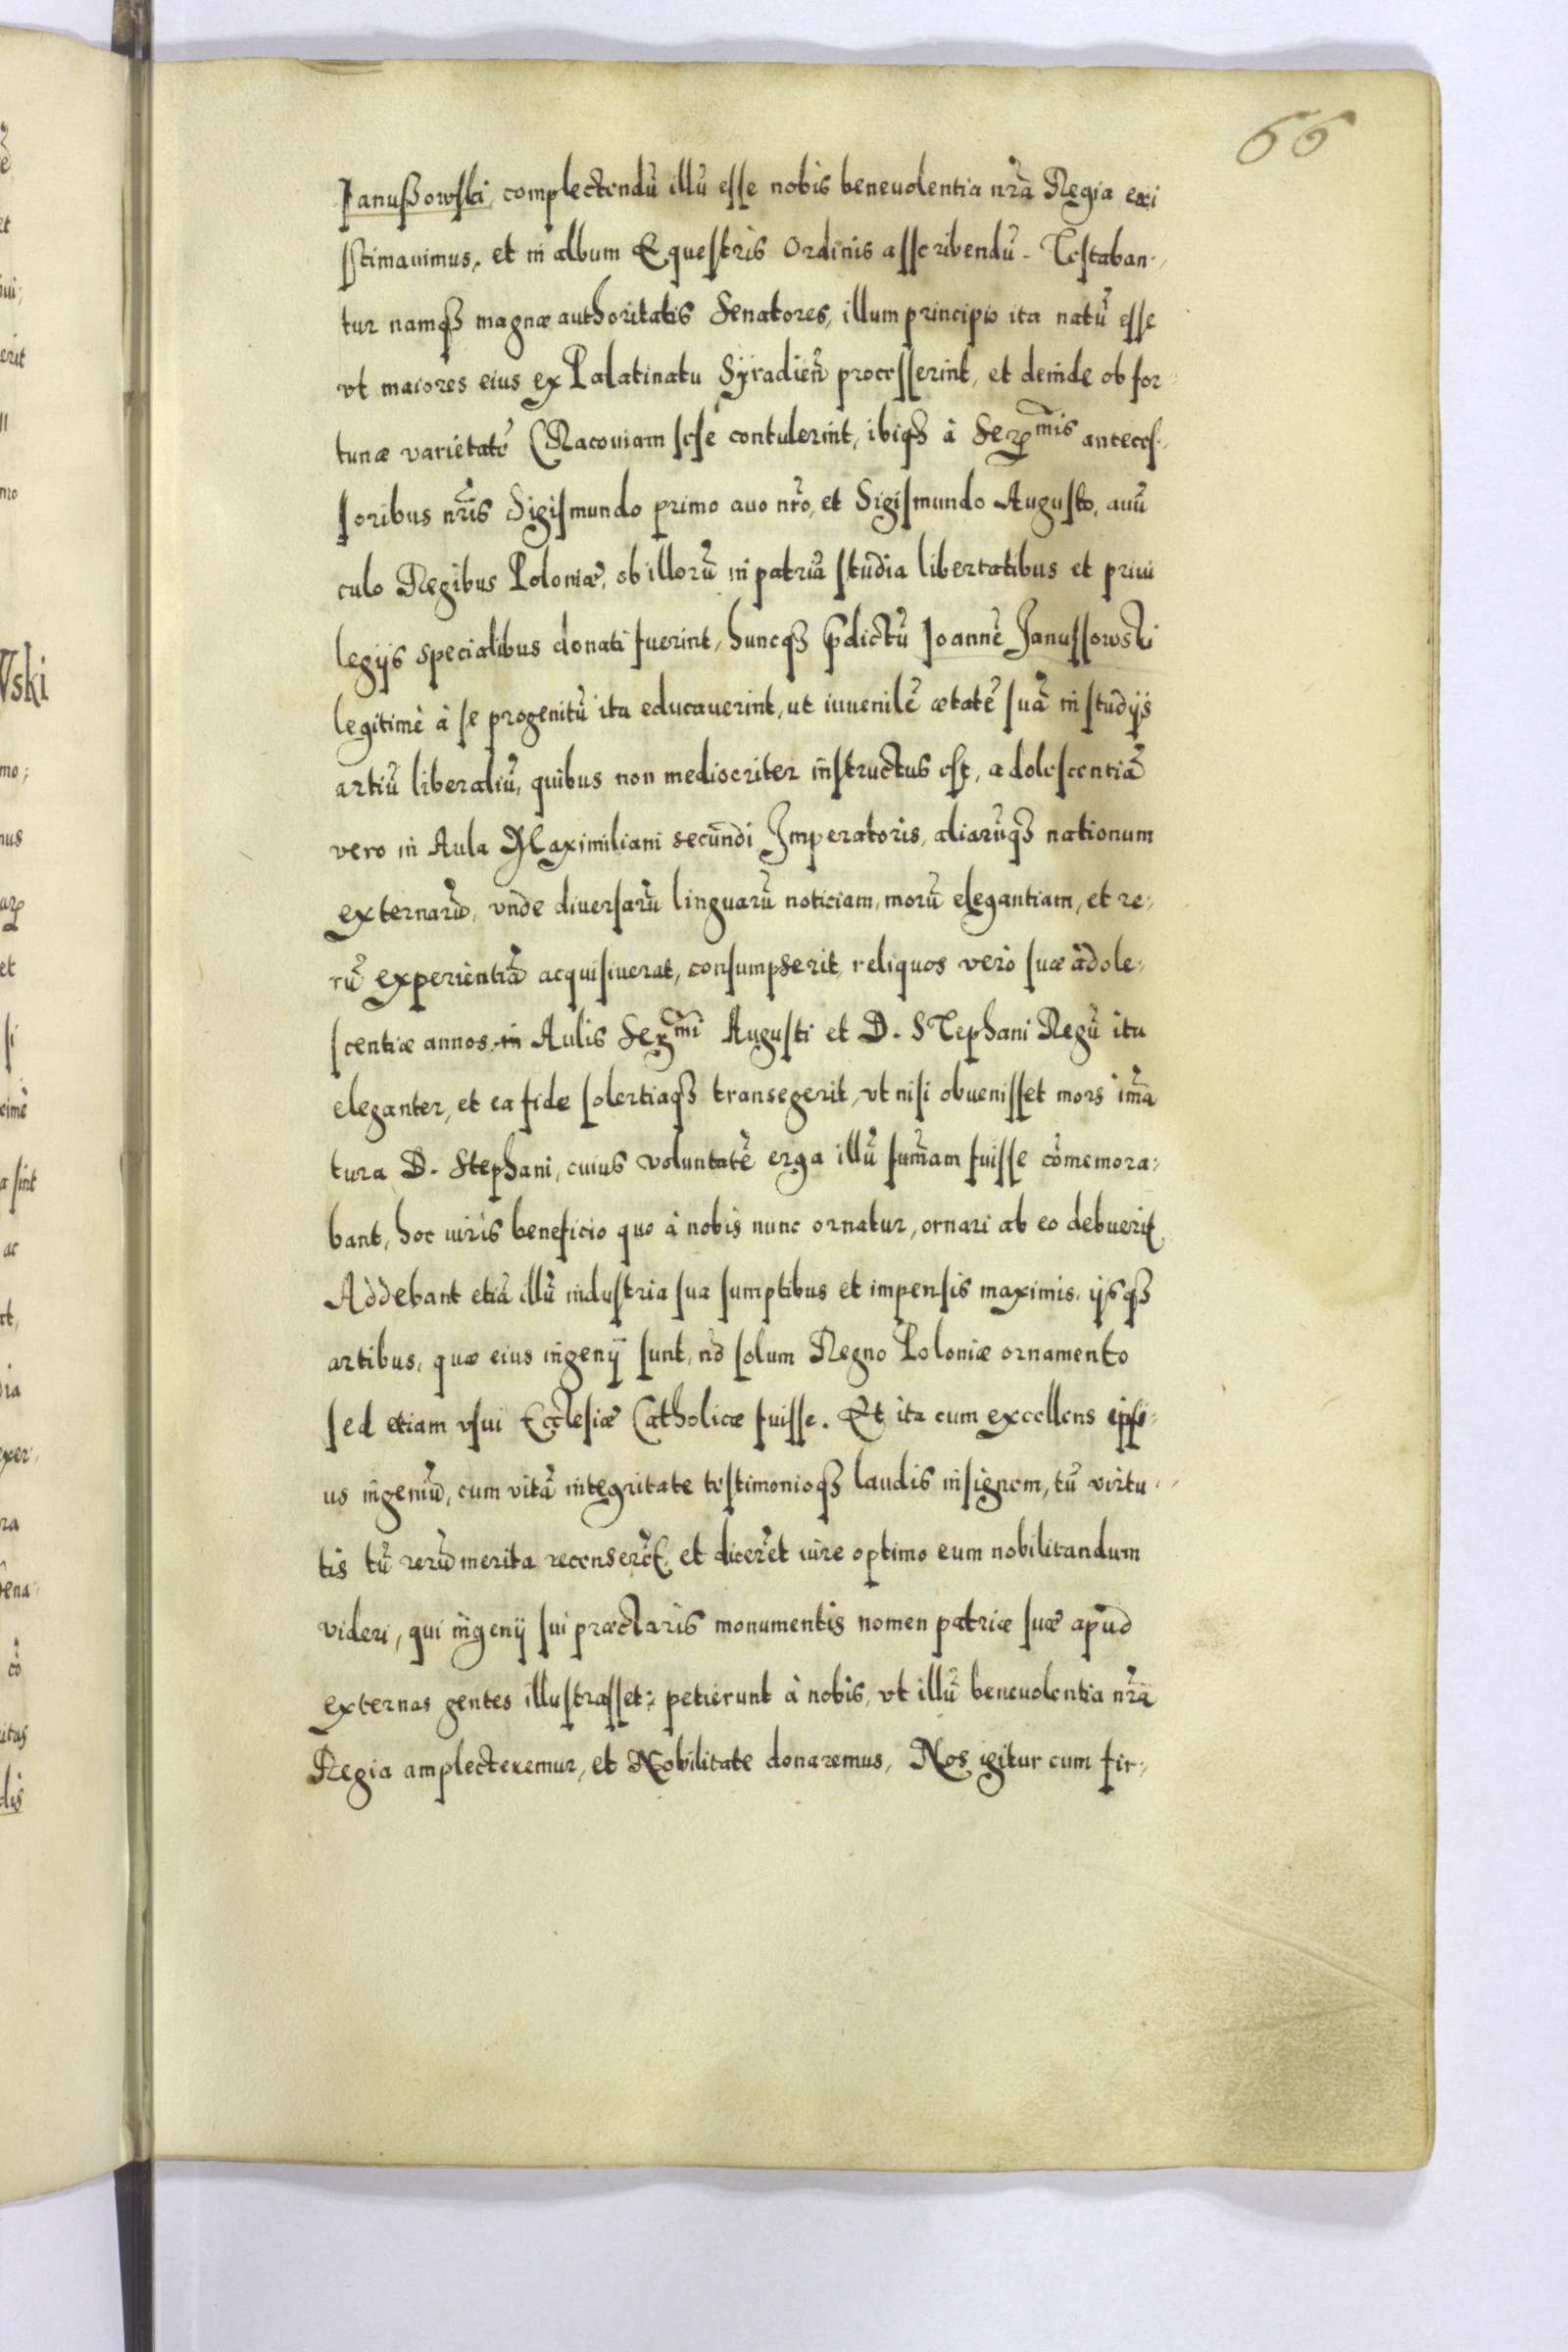 66
Ianusßowski, complectendũ illũ esse nobis beneuolentia nrã Regia exi
sstimauimus, et in album Equestris Ordinis asscribendũ. Testaban-
tur namqȝ magnæ authoritatis Senatores, illum principio ita natũ esse
vt maiores eius ex Palatinatu Syradieñ processerint, et deinde ob for-
tunæ varietatẽ Cracouiam sesè contulerint, ibiqȝ à Serᵐⁱˢ anteces-
soribus nrĩs Sigismundo primo auo nrõ, et Sigismundo Augusto, auũ
culo Regibus Poloniæ, ob illorũ in patriã studia libertatibus et priui
legijs specialibus donati fuerint, huncqȝ p̃dictũ Ioannẽ Janussowski
legitimè à se progenitũ ita educauerint, ut iuuenilẽ ætatẽ suã in studijs
artiũ liberaliũ, quibus non mediocriter instructus est, adolescentiã
vero in Aula Maximiliani secundi Imperatoris, aliarũqȝ nationum
externarũ, vnde diuersarũ linguarũ noticiam, morũ elegantiam, et re-
rũ experientiã acquisiuerat, consumpserit, reliquos verò suæ adole-
scentiæ annos, in Aulis Serᵐⁱ Augusti et D. STephani Regũ ita
eleganter, et ea fide solertiaqȝ transegerit, vt nisi obuenisset mors im̃a
tura D. Stephani, cuius voluntatẽ erga illũ sum̃am fuisse cõmemora-
bant, hoc iuris beneficio quo à nobis nunc ornatur, ornari ab eo debuerit
Addebant etiã illũ industria sua sumptibus et impensis maximis, ijsqȝ
artibus, quæ eius ingenij sunt, nõ solum Regno Poloniæ ornamento
sed etiam vsui Ecclesiæ Catholicæ fuisse. Et ita cum excellens ipsi-
us ingeniũ, cum vitã integritate testimonioqȝ laudis insignem, tũ virtu-
tis tũ rerũ merita recenserẽt, et dicerẽt iure optimo eum nobilitandum
videri, qui ingenij sui præclaris monumentis nomen patriæ suæ apud
externas gentes illustrasset: petierunt à nobis, vt illũ beneuolentia nrã
Regia amplecteremur, et Nobilitate donaremus, Nos igitur cum fir-